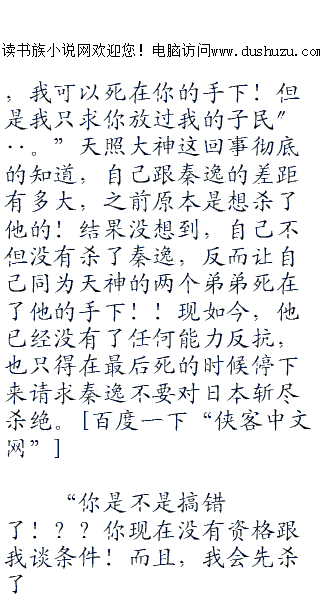 读书族小说网欢迎您！电脑访问www.dushuzu.com
，我可以死在你的手下！但
是我只求你放过我的子民〞
··。”天照大神这回事彻底
的知道，自己跟秦逸的差距
有多大，之前原本是想杀了
他的！结果没想到，自己不
但没有杀了秦逸，反而让自
己同为天神的两个弟弟死在
了他的手下！！现如今，他
已经没有了任何能力反抗，
也只得在最后死的时候停下
来请求秦逸不要对日本斩尽
杀绝。[百度一下“侠客中文
网”]
“你是不是搞错
了！？？你现在没有资格跟
我谈条件！而且，我会先杀
了